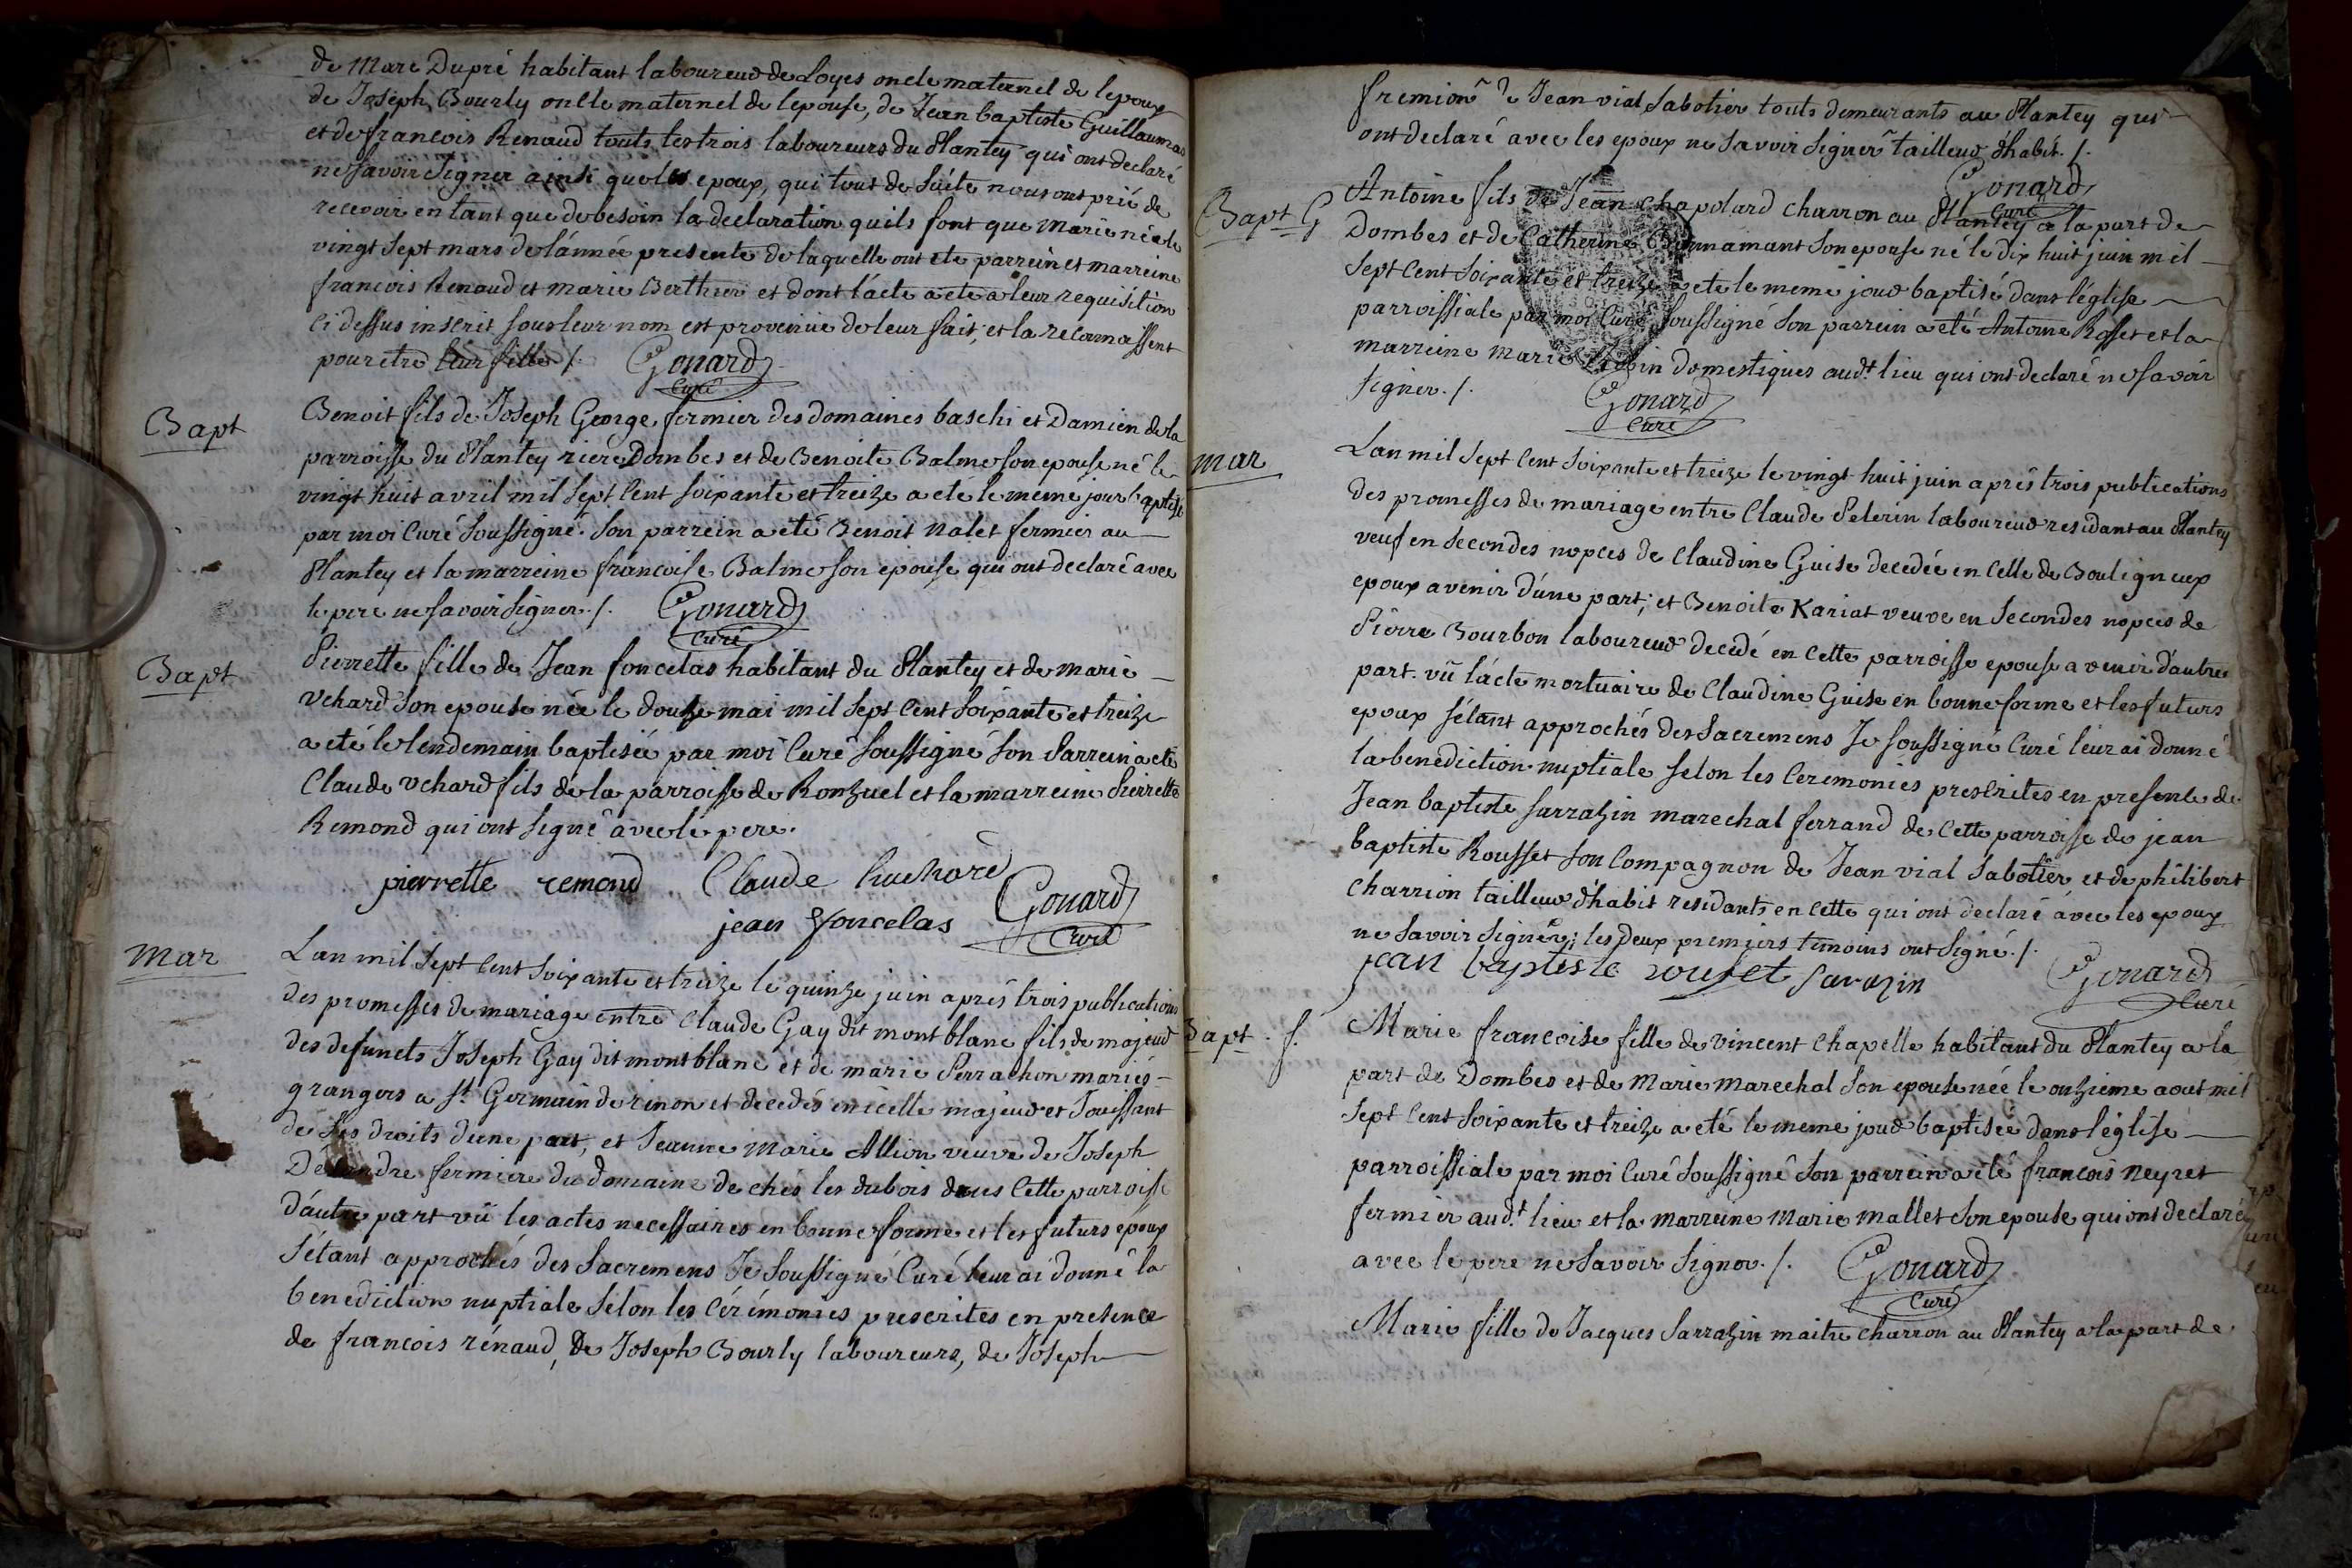 de Marc Dupré habitant laboureur de Loyes oncle maternel de lepoux
de Joseph Bourly oncle maternel de lepouse, de Jean baptiste Guillaumas
et de francois Renaud touts les trois laboureurs du Plantey qui ont declaré
ne savoir signer ainsi que les epoux, qui tout de suite nous ont prié de
recevoir en tant que de besoin la declaration quils font que marie née le
vingt sept mars de lánnée presente de laquelle ont ete parrein et marreine
francois Renaud et marie Berthier et dont lácte a ete a leur requisition
ci dessus inscrit sous leur nom est provenue de leur fait, et la reconnassent
pour etre leur fille ./.
Gonard
Curé
Bapt
Benoit fils de Joseph George fermier des domaines baschi et Damien de la
parroisse du Plantey riere Dombes et de Benoite Balme son epouse né le
vingt huit avril mil sept cent soixante et treize a eté le meme jour baptisé
par moi Curé soussigné. son parrein a eté Benoit nalet fermier au
Plantey et la marreine francoise Balme son epouse qui ont declaré avec
le pere ne savoir signer ./.
Gonard
Curé
Bapt
Pierrette fille de Jean foncelas habitant du Plantey et de marie
Vchard son epouse née le douze mai mil sept cent soixante et treize
a eté le lendemain baptisée par moi Curé soussigné son Parrein a eté
Claude Vchard fils de la parroisse de Ronzuel et la marreine Pierrette
Remond qui ont signé avec le pere.
pierrette remond Claude huchard
jean foncelas Gonard
Curé
Mar
Lan mil sept cent soixante et treize le quinze juin aprés trois publications
des promesses de mariage entre Claude Gay dit mont blanc fils de majeur
des defuncts Joseph Gay dit montblanc et de marie Perrachon mariés
grangers a St Germain de rinon et decedés en icelle majeur et Jouissant
de ses droits dune part, et Jeanne Marie Allion veuve de Joseph
fermiere du domaine de chés les dubois dans Cette parroisse
dáutre part vû les actes necessaires en bonne forme et les futurs epoux
sétant approchés des Sacremens Je soussigné Curé leur ai donné la
benediction nuptiale selon les Cérémonies prescrites en presence
de francois rénaud, de Joseph Bourly laboureurs, de Joseph
fremion de Jean vial Sabotier touts demeurants au Plantey qui
ont declaré avec les epoux ne savoir signer tailleur dhabit. /.
Gonard
Curé
Bapt G
Antoine fils de Jean Chapolard charron au Plantey a la part de
Dombes et de Catherine Bonnamant son epouse né le dix huit juin mil
sept cent soixante et treize a ete le meme jour baptisé dans léglise
parroissiale par moi Curé soussigné son parrein a eté Antoine Rosset et la
marreine marie domestiques audt lieu qui ont declaré ne savoir
signer ./.
Gonard
Curé
mar
Lan mil sept cent soixante et treize le vingt huit juin aprés trois publications
des promesses de mariage entre Claude Pelerin laboureur residant au Plantey
veuf en secondes nopces de Claudine Guise decedée en Celle de Bouligneux
epoux avenir dúne part; et Benoite Kariat veuve en secondes nopces de
Pierre Bourbon laboureur decedé en Cette parroisse epouse avenir dáutre
part. vû lácte mortuaire de Claudine Guise en bonne forme et les futurs
epoux sétant approchés des Sacremens Je soussigné Curé leur ai donné
la benediction nuptiale selon les Ceremonies prescrites en presence de
Jean baptiste sarrazin marechal ferrand de Cette parroisse de jean
baptiste Rousset son Compagnon de Jean vial Sabotier et de philibert
Charrion tailleur dhabit residants en cette qui ont declaré avec les epoux
ne savoir signer; les deux premiers temoins ont signé ./.
jean baptiste rouset sarazin Gonard
Curé
Bapt. f.
Marie francoise fille de vincent Chapelle habitant du Plantey a la
part de Dombes et de Marie marechal son epouse née le onzieme aout mil
sept cent soixante et treize a eté le meme jour baptisée dans léglise
parroissiale par moi Curé soussigné son parrein a eté francois neyret
fermier audt lieu et la marreine Marie mallet son epouse qui ont declaré
avec le pere ne savoir signer ./.
Gonard
Curé
Marie fille de Jacques Sarrazin maitre charron au Plantey a la part de